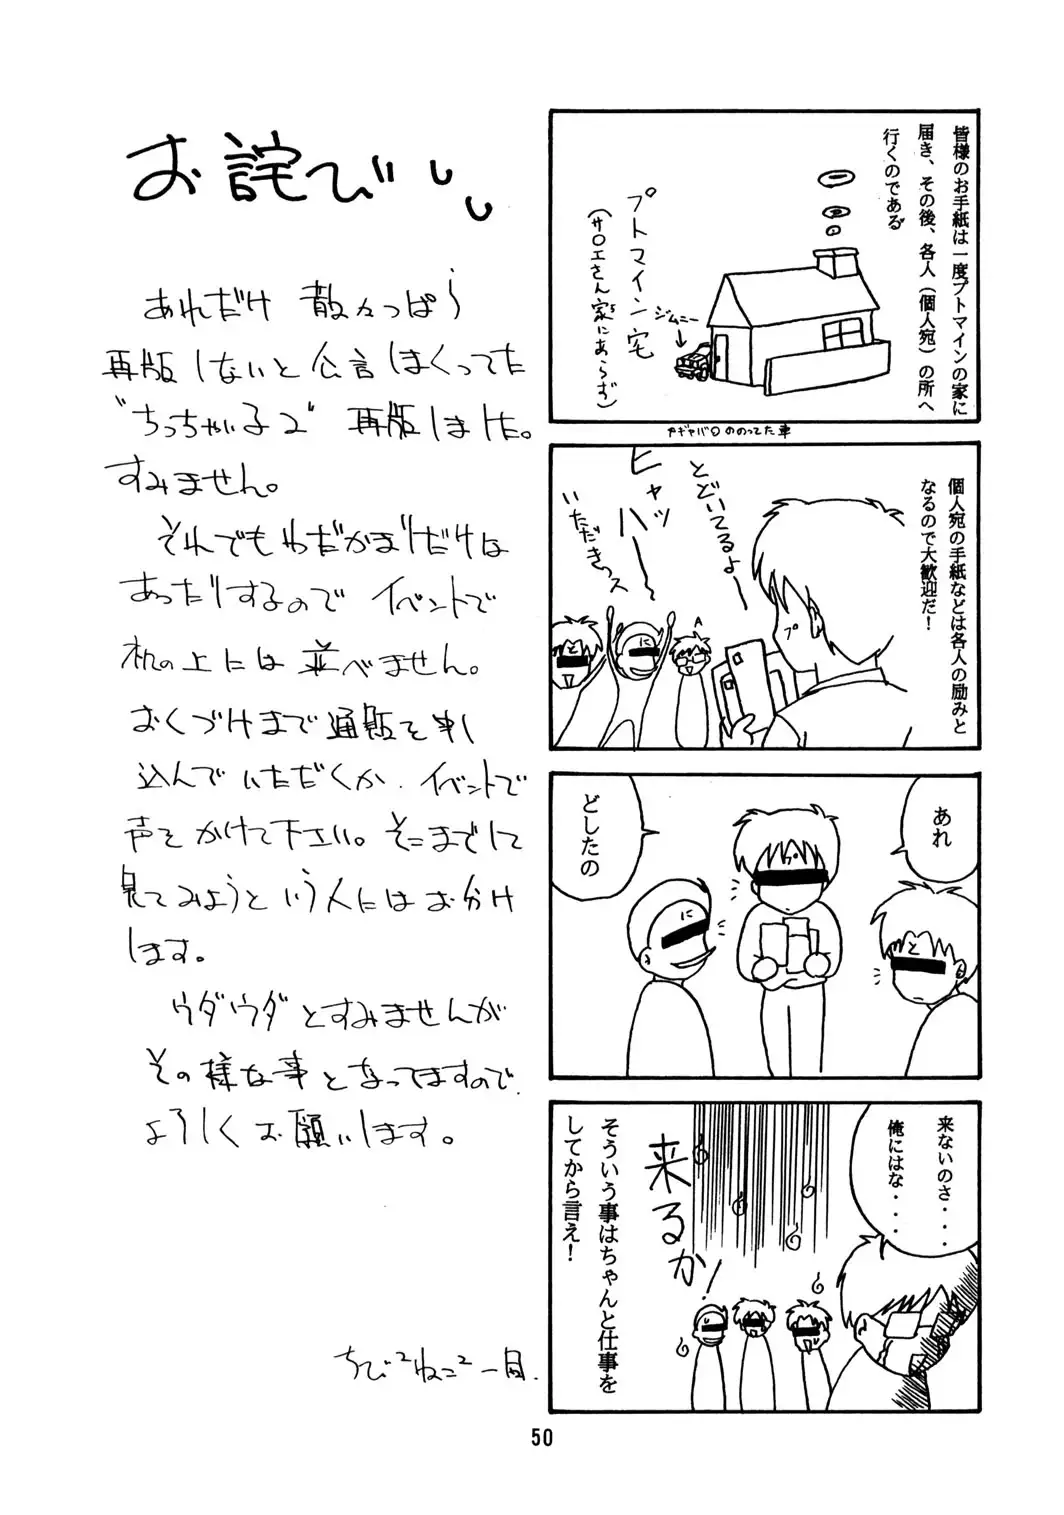 皆様のお手紙は一度プトマインの家に
届き、その後、各人（個人宛）の所へ
行くのである
プトマイン宅
（サロエさん家にあらず）
ジムニー
個人宛の手紙などは各人の励みと
なるので大歓迎だ！
とどいてるよー
ヒャッハー
いただきっス
プ
に
と
あれ
どしたの
プ
に
と
来ないのさ・・・
俺にはな・・・・
来るか！
そういう事はちゃんと仕事を
してから言え！
お詫び
あれだけ 散々っぱら
再版しないと公言しまくってた
"ちっちゃい子2" 再版しました。
すみません。
それでもわだかまりだけは
あったりするので イベントで
机の上には並べません。
おくづけまで通販を申し
込んでいただくか、イベントで
声をかけて下さい。そこまでして
見てみようという人にはお分け
します。
ウダウダとすみませんが
その様な事となってますので、
よろしくお願いします。
ちび²ねこ²一同.
50